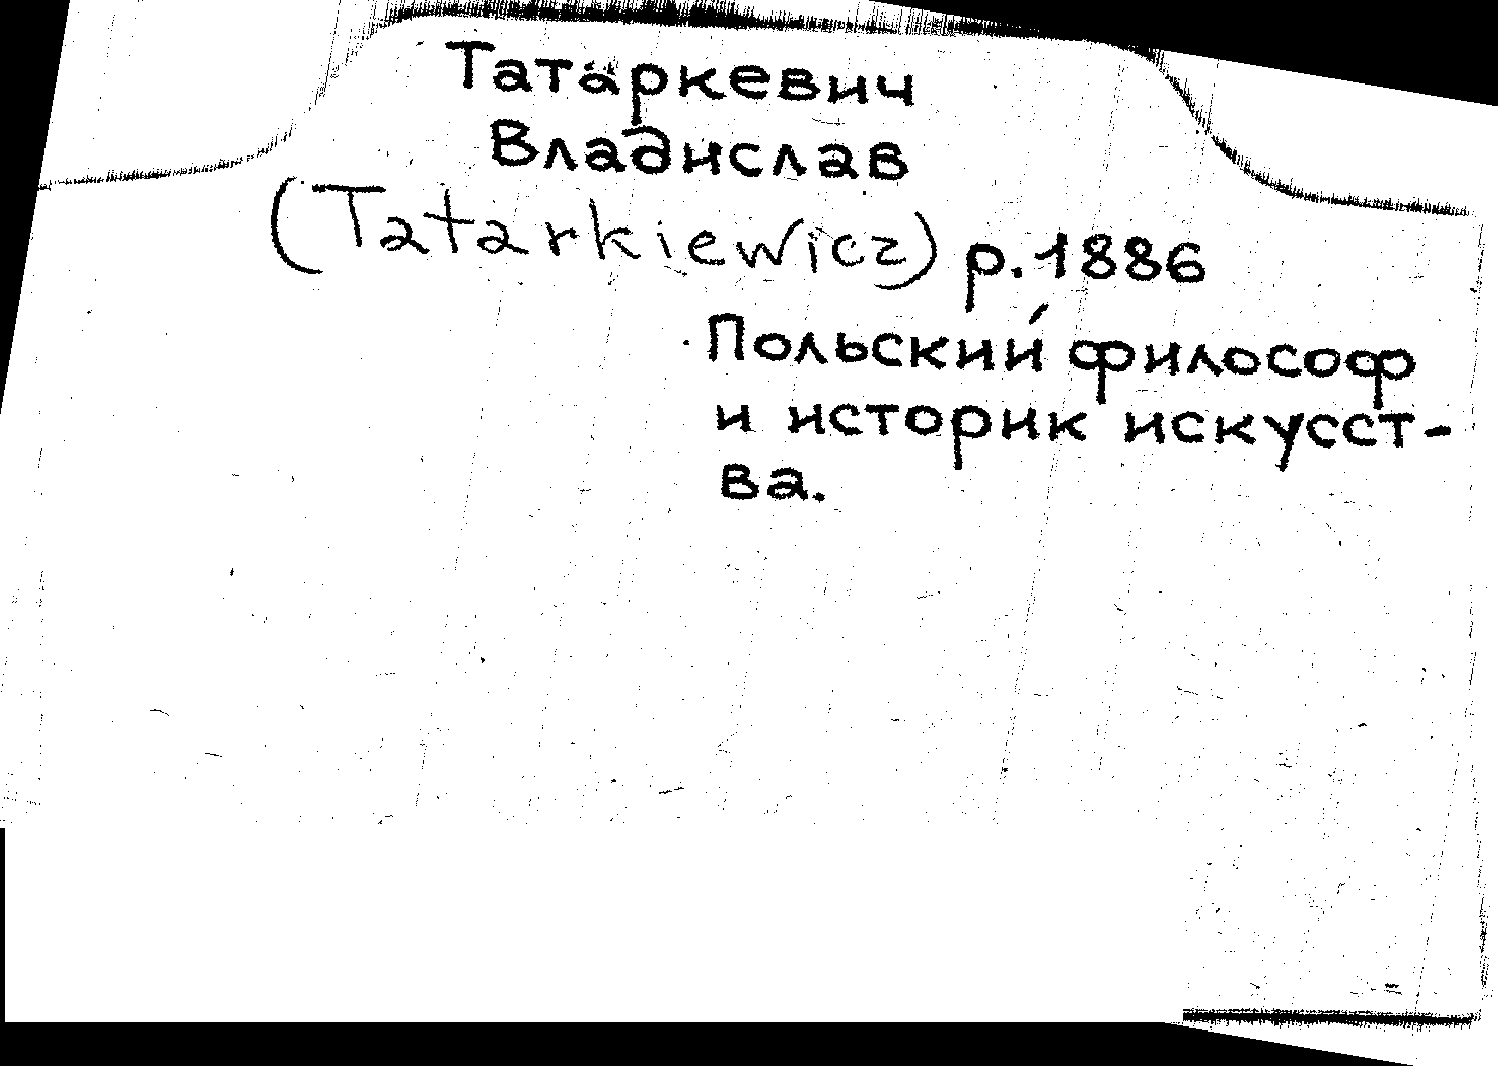 Татаркевич
Владислав
(Tatarkiewicz) р. 1886
Польский философ
и историк искусст-
ва.